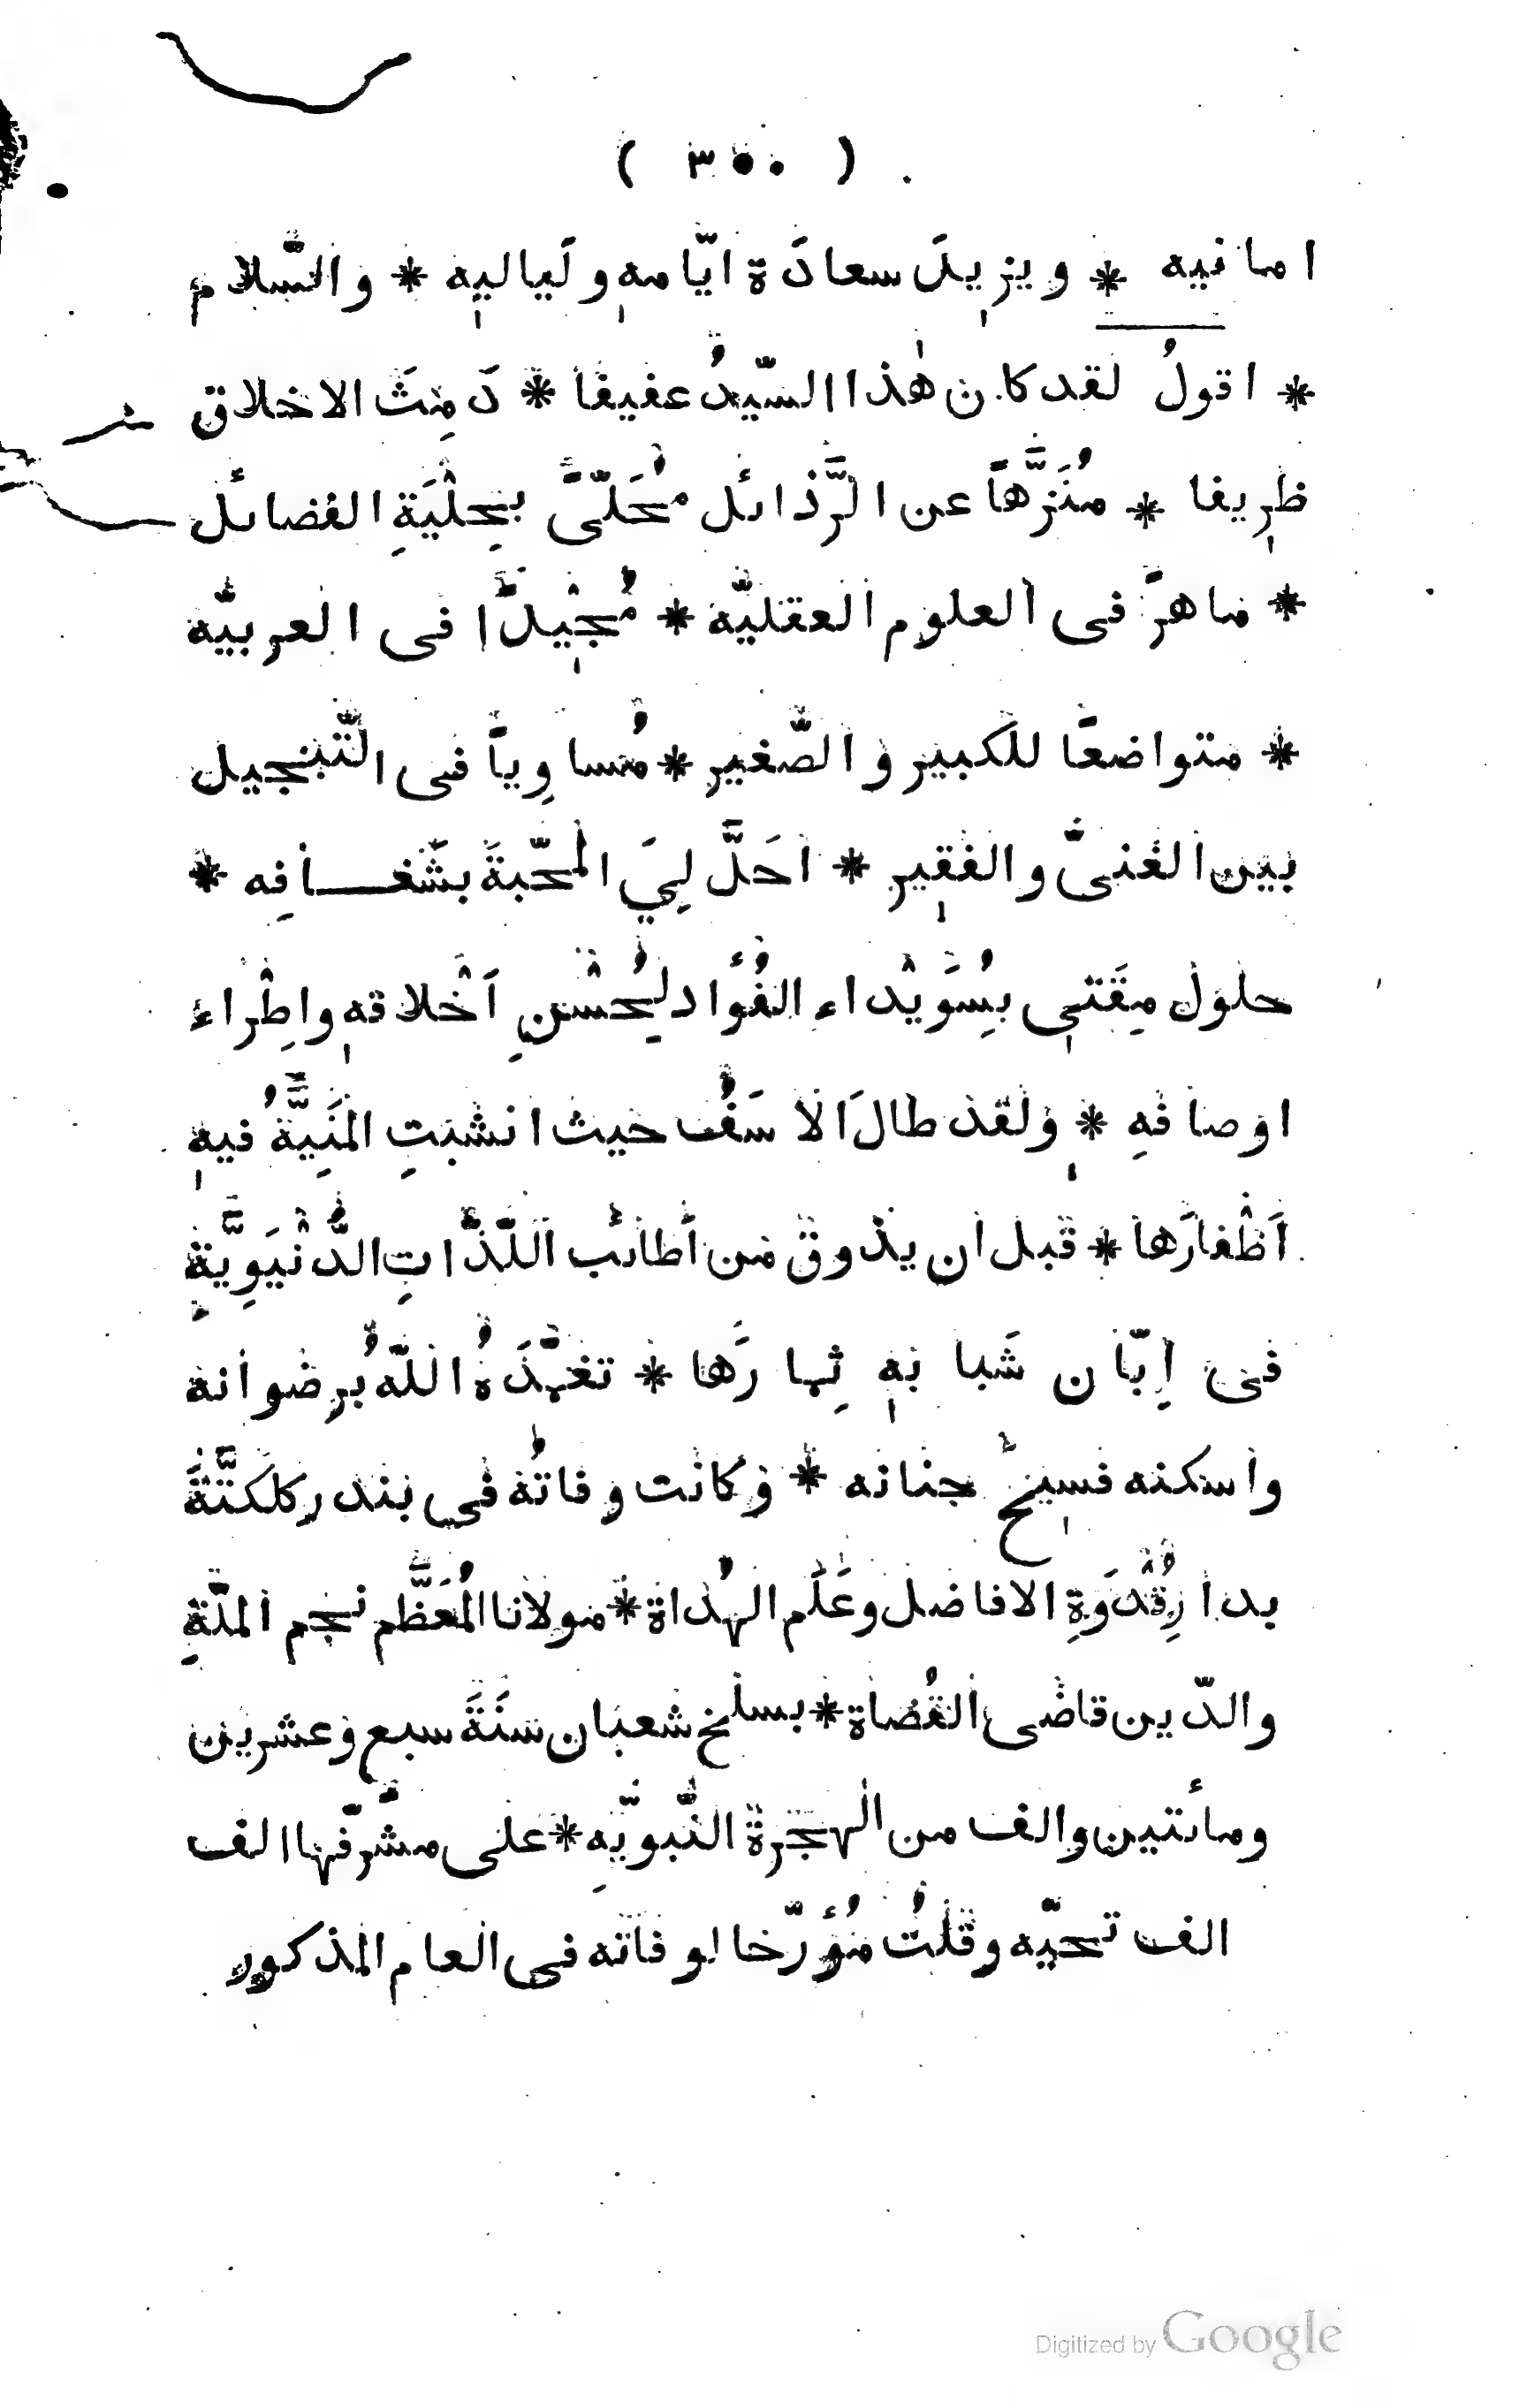 ( ٣٥٠ )
امانيه * ويزيدَ سعادَة ايّامهٖ ولَياليهٖ * والسّلام
* اقولُ لقد كان هٰذا السّيّدُ عفيفا * دَمِثَ الاخلاق
ظريفا * مُنَزَّهاً عن الرَّذائل مُحَلّىً بحِلْيَةِ الفضائل
* ماهرً فى العلوم العقليّه * مُجْيدًا فى العربيّه
* متواضعًا للكبير والصّغير * مُساوِياً فى التّبجيل
بين الغنىّ والفقير * احَلَّ لِيَ المحّبةَ بشَغـافِه *
حلول مِقَتى بسُوَيْداء الفُؤاد لِحُسْنِ اَخْلاقهٖ واِطْراء
اوصافهِ * ولقد طالَ الاَسَفُ حيث انشبَتِ المَنِيَّةُ فيهٖ
اَظْفارَها * قبل ان يذوق من أطائب اللّذّاتِ الدُّنْيَوِيَّةِ
فى اِبّان شَبابهٖ ثِمارَها * تغمّدَهُ اللّهُ برضوانه
واسكنه فسيحَ جنانه * وكانت وفاتُه فى بندر كلكتَّةَ
بدارِ قُدْوَةِ الافاضل وعَلَم الهُداة * مولانا المُعَظَّم نجم الملّةِ
والدّين قاضى القُضاة * بسلخ شعبان سَنَةَ سبع وعشرين
ومائتين والف من الهجرة النّبويّهِ * على مشّرفّها الف
الف تحيّه وقلتُ مُؤَرّخا لوفاته فى العام المذكور
Digitized by Google